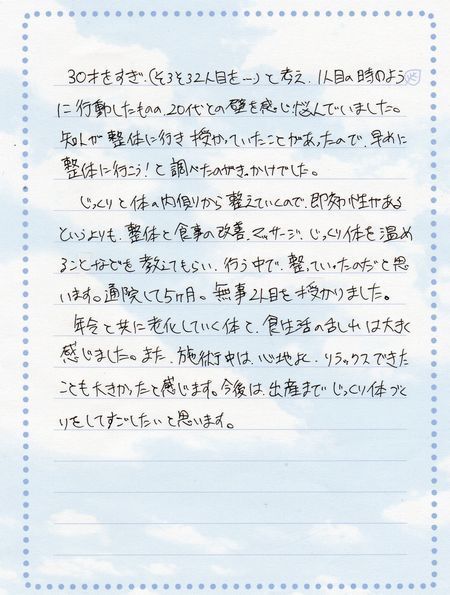 30才をすぎ、(そろそろ2人目を…)と考え、1人目の時のよう
に行動したものの、20代との壁を感じ悩んでいました。
知人が整体に行き授かっていたことがあったので、早めに
整体に行こう!と調べたのがきっかけでした。
じっくりと体の内側から整えていくので、即効性がある
というよりも、整体と食事の改善、マッサージ、じっくり体を温め
ることなどを教えてもらい、行う中で、整っていったのだと思
います。通院して5ヶ月。無事2人目を授かりました。
年令と共に老化していく体と、食生活の乱れは大きく
感じました。また、施術中は、心地よく、リラックスできた
ことも大きかったと感じます。今後は、出産までじっくり体づく
りをしてすごしたいと思います。